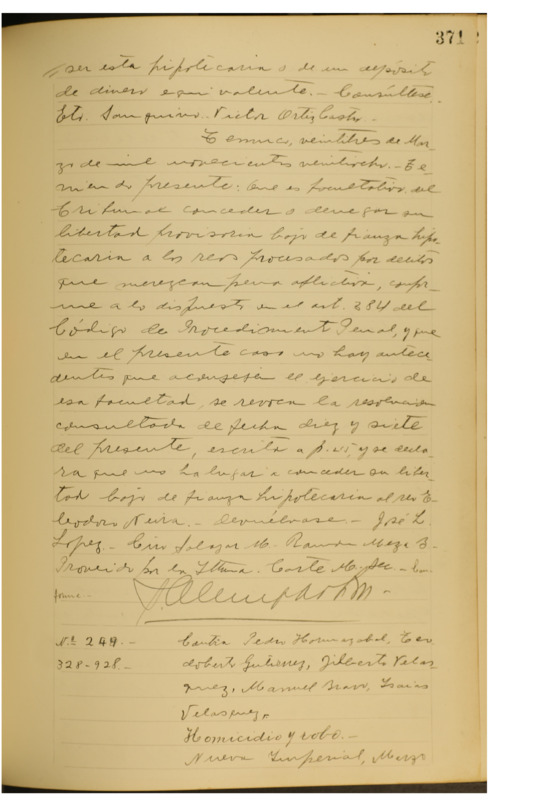 371
ser esta hipotecaria o de un depósito
de dinero equivalente.- Consúltese.
Eto. Sanquivo. Victor Ortiz Castro.-
Temuco, veintitres de Mar-
zo de mil novecientos veintiocho.- Te-
niendo presente: Que es facultativo del
Tribunal conceder o denegar su
libertad provisoria bajo de fianza hipo-
tecaria a los reos procesados por delitos
que merezcan pena aflictiva, confor-
me a lo dispuesto en el art. 384 del
Código de Procedimiento Penal, y que
en el presente caso no hay antece
dentes que aconsejen el ejercicio de
esa facultad, se revoca la resolucion
consultada de fecha diez y siete
del presente, escrita a f. 25, y se decla-
ra que no ha lugar a conceder su liber-
tad bajo de fianza hipotecaria al reo E-
leodoro Neira.- Devuélvase.- José L.
Lopez.- Ciro Salazar M. Ramon Meza B-
Proveido por la Iltma. Corte M. Sec.- Con-
forme.-
Nº 249.- Contra Pedro Hormazabal, Teo
328-928.- doberto Gutierrez, Jilberto Velas
quez, Manuel Bravo, Isaias
Velasquez.
Homicidio y robo.-
Nueva Imperial, Marzo